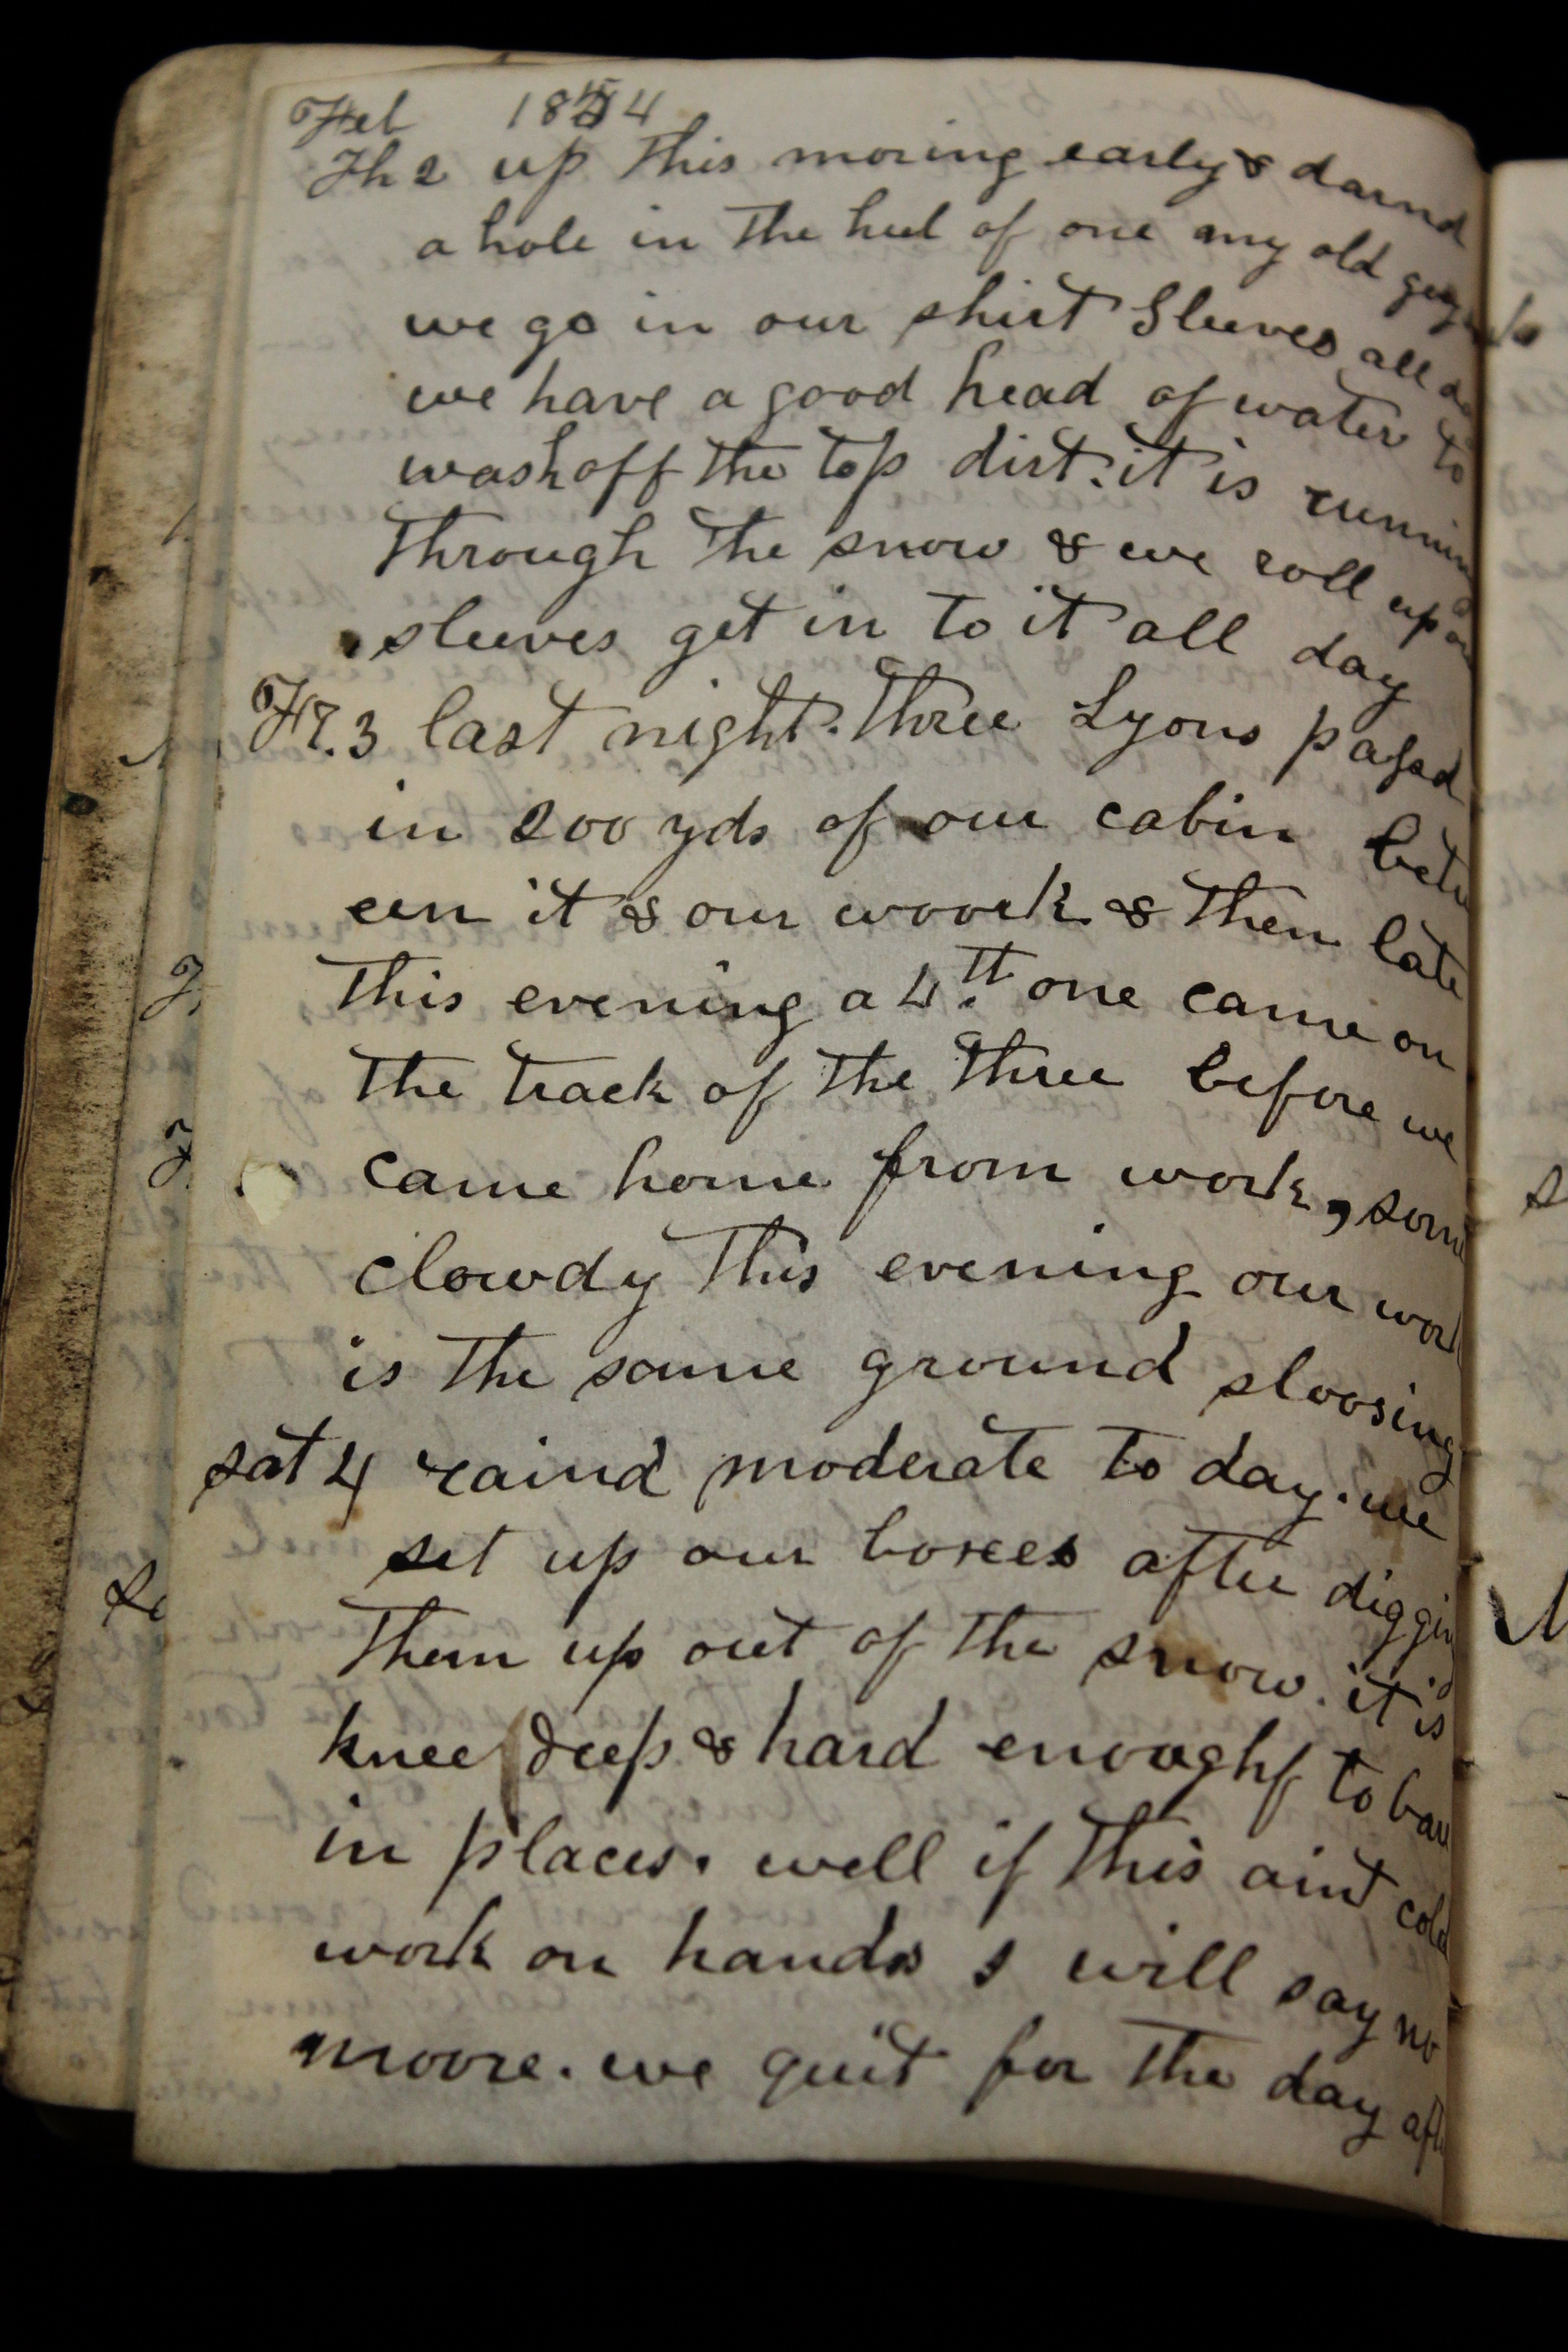 Feb 1854
Th 2 up this moring early & darnd
a hole in the heel of one my old
we go in our shirt Sleeves all
we have a good head of water to
wash off the top dirt. it is runnin
through the snow & we roll up
sleeves get in to it all day
Fr. 3 last night. three Lyons passd
in 200 yds of our cabin betw
een it & our woork & then late
this evening a 4th one came on
the track of the three before we
came home from work, some
clowdy this evening our work
is the same ground sloosing
sat 4 raind moderate to day. we
set up our boxees after diggin
them up out of the snow. it is
knee deep & hard enooughf to
in places. well if this aint cold
work on hands I will say no
moore. we quit for the day